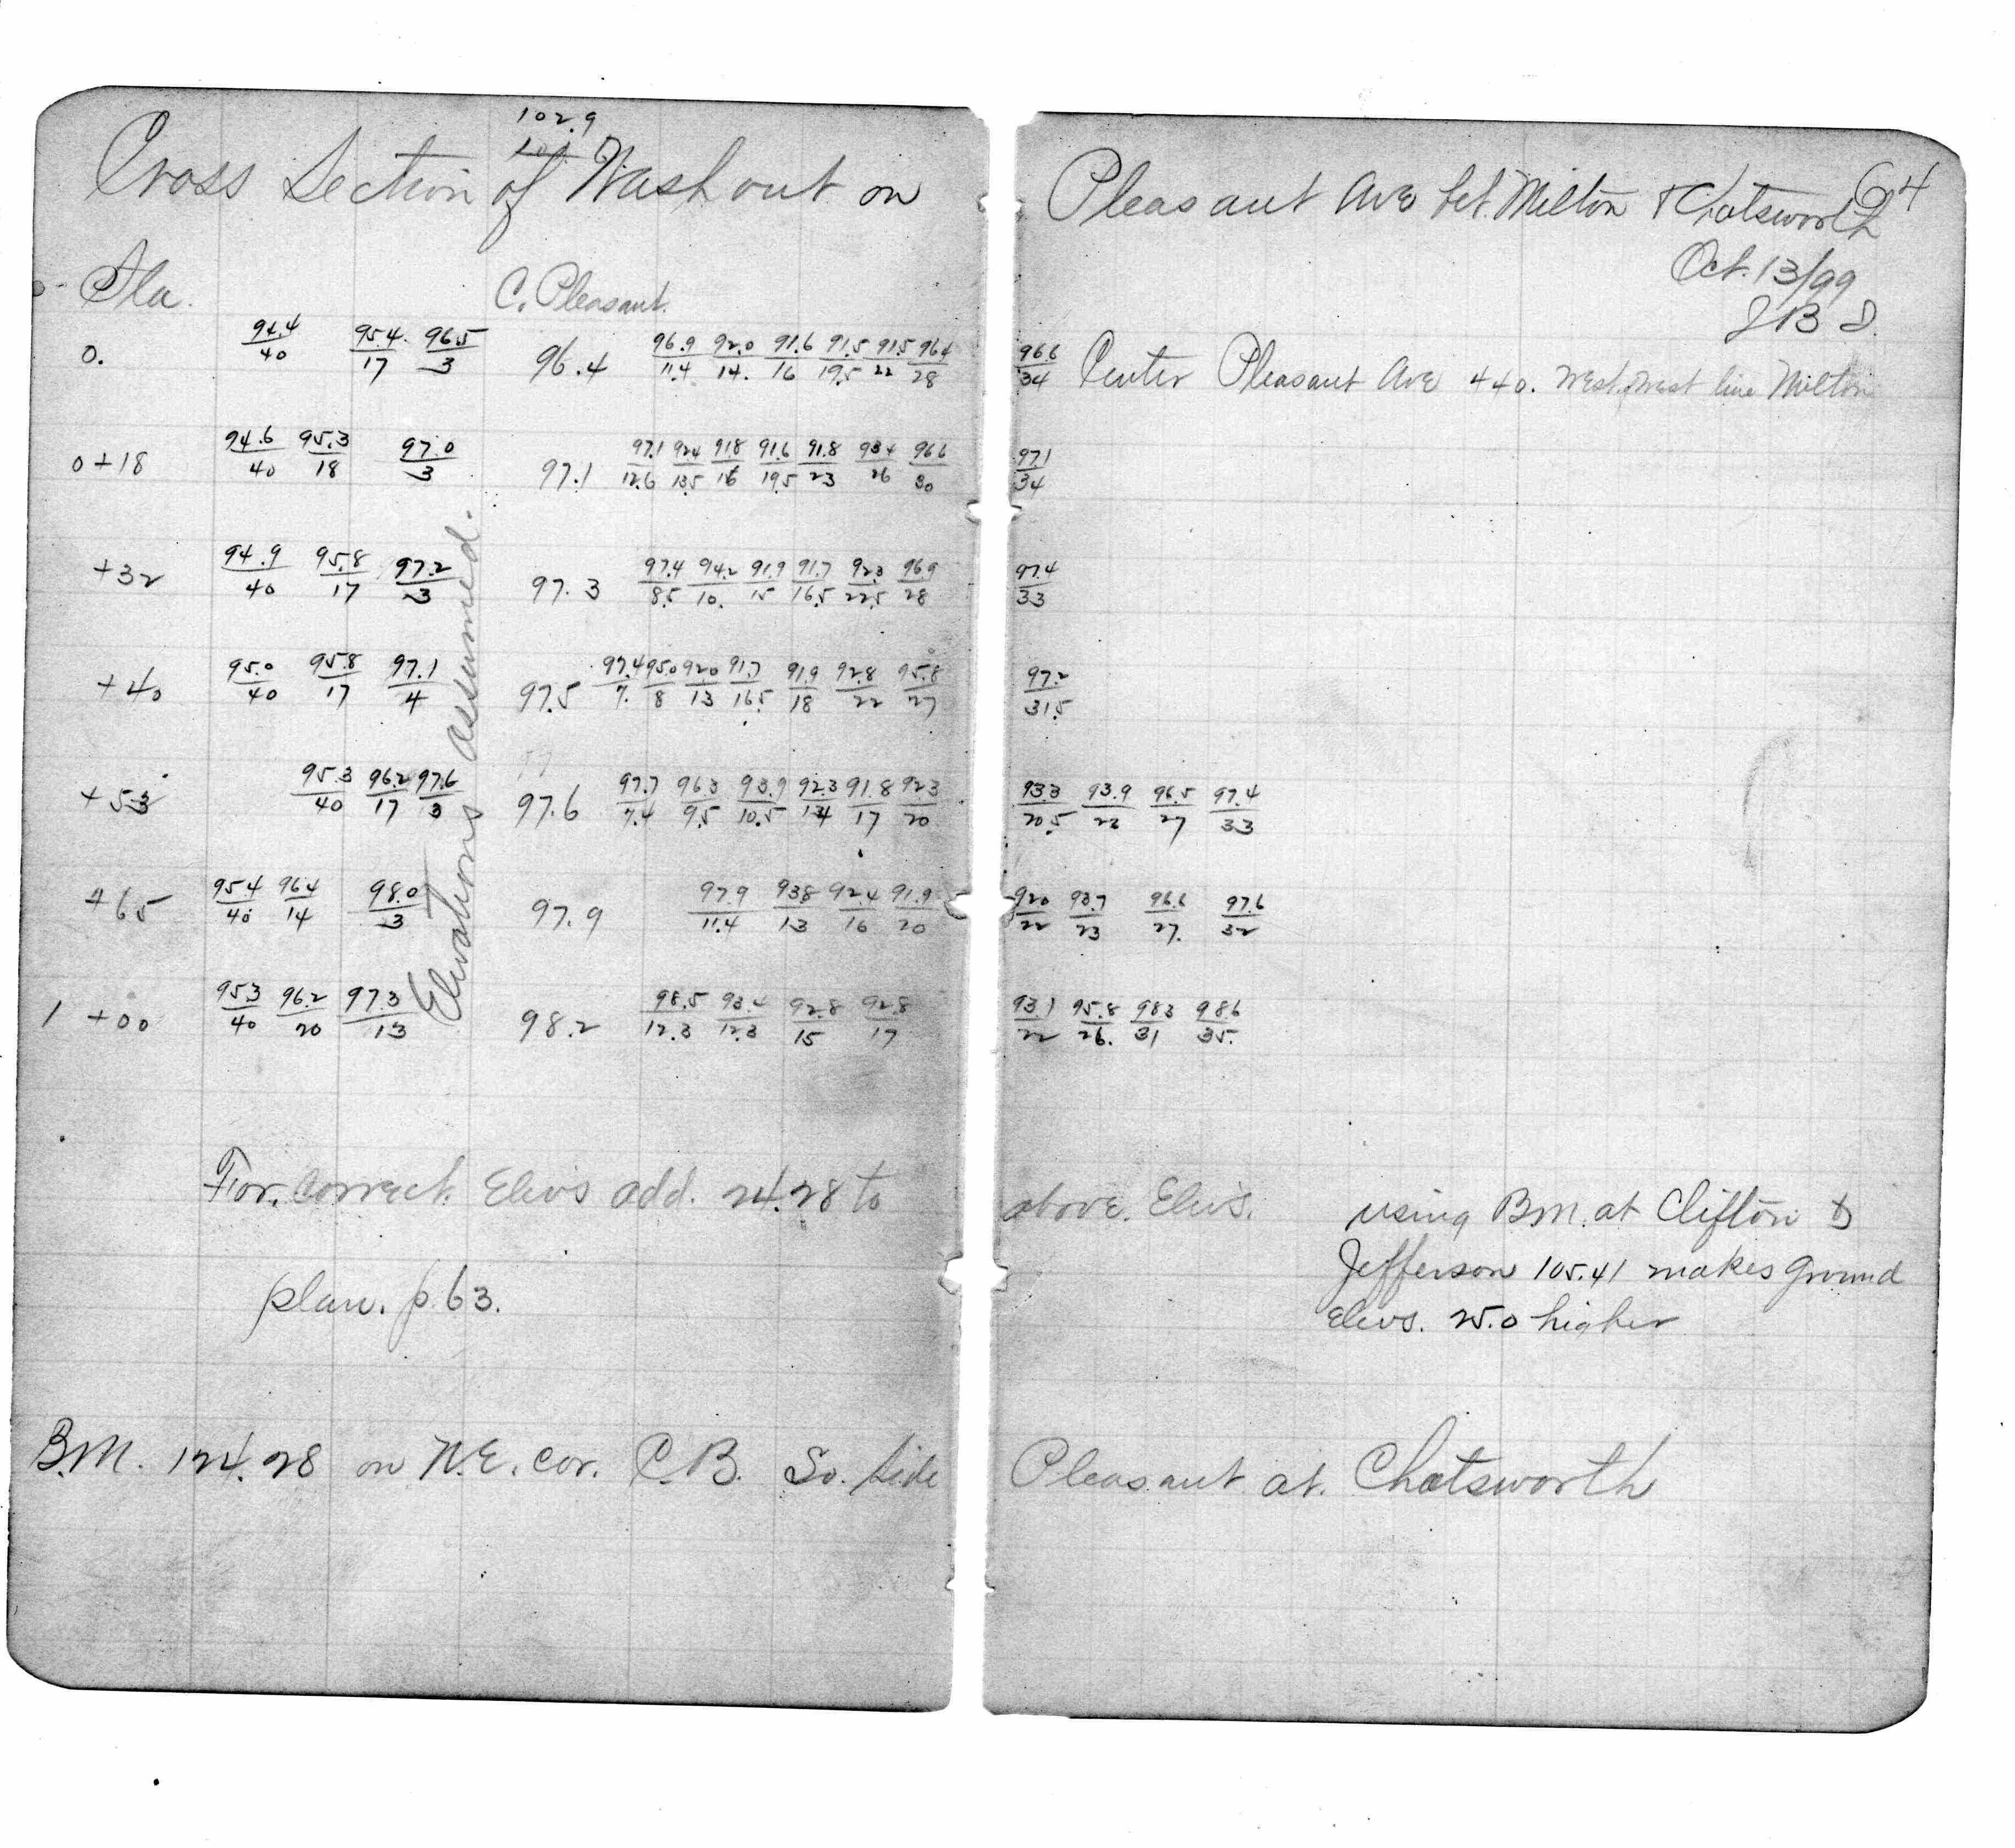 102.9
Cross Section of Washout on Pleasant Ave bet. Milton & Chatsworth 64
Oct. 13/99
J B D.
Sta. C. Pleasant.
0. 94.4/40 95.4/17 96.5/3 96.4 96.9/11.4 92.0/14. 91.6/16 91.5/19.5 91.5/22 96.4/28 96.6/34 Center Pleasant Ave 440. West of West line Milton
0+18 94.6/40 95.3/18 97.0/3 97.1 97.1/12.6 92.4/13.5 91.8/16 91.6/19.5 91.8/23 93.4/26 96.6/30 97.1/34
+32 94.9/40 95.8/17 97.2/3 97.3 97.4/8.5 94.2/10. 91.9/15 91.7/16.5 92.3/22.5 96.9/28 97.4/33
+40 95.0/40 95.8/17 97.1/4 97.5 97.4/7. 95.0/8 92.0/13 91.7/16.5 91.9/18 92.8/22 95.8/27 97.2/31.5
+53 95.3/40 96.2/17 97.6/3 97.6 97.7/7.4 96.3/9.5 93.9/10.5 92.3/14 91.8/17 92.3/20 93.3/20.5 93.9/23 96.5/27 97.4/33
+65 95.4/40 96.4/14 98.0/3 97.9 97.9/11.4 93.8/13 92.4/16 91.9/20 92.0/22 93.7/23 96.6/27. 97.6/32
1+00 95.3/40 96.2/20 97.3/13 98.2 98.5/12.3 93.4/12.3 92.8/15 92.8/17 93.1/22 95.8/26. 98.3/31 98.6/35.
Elevations assumed.
For. correct. Elevs add. 24.28 to above. Elevs.
plan. p. 63.
using B.M. at Clifton &
Jefferson 105.41 makes ground
elevs. 25.0 higher
B.M. 124.28 on N.E. cor. C.B. So. Side Pleasant at. Chatsworth